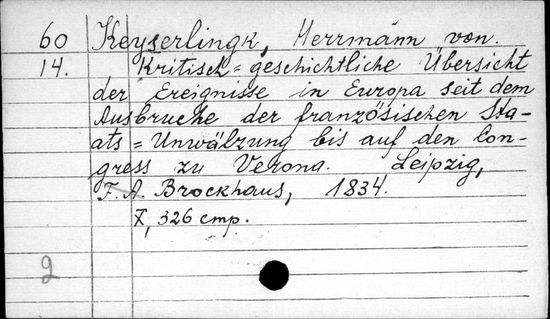 60 Keyserlingk, Herrmann von.
14. Kritisch=geschichtliche Übersicht
der Ereignisse in Europa seit dem
Ausbruche der französischen Sta-
ats=Umwälzung bis auf den Con-
gress zu Verona. Leipzig,
F. A. Brockhaus, 1834.
X, 326 cmp.
2